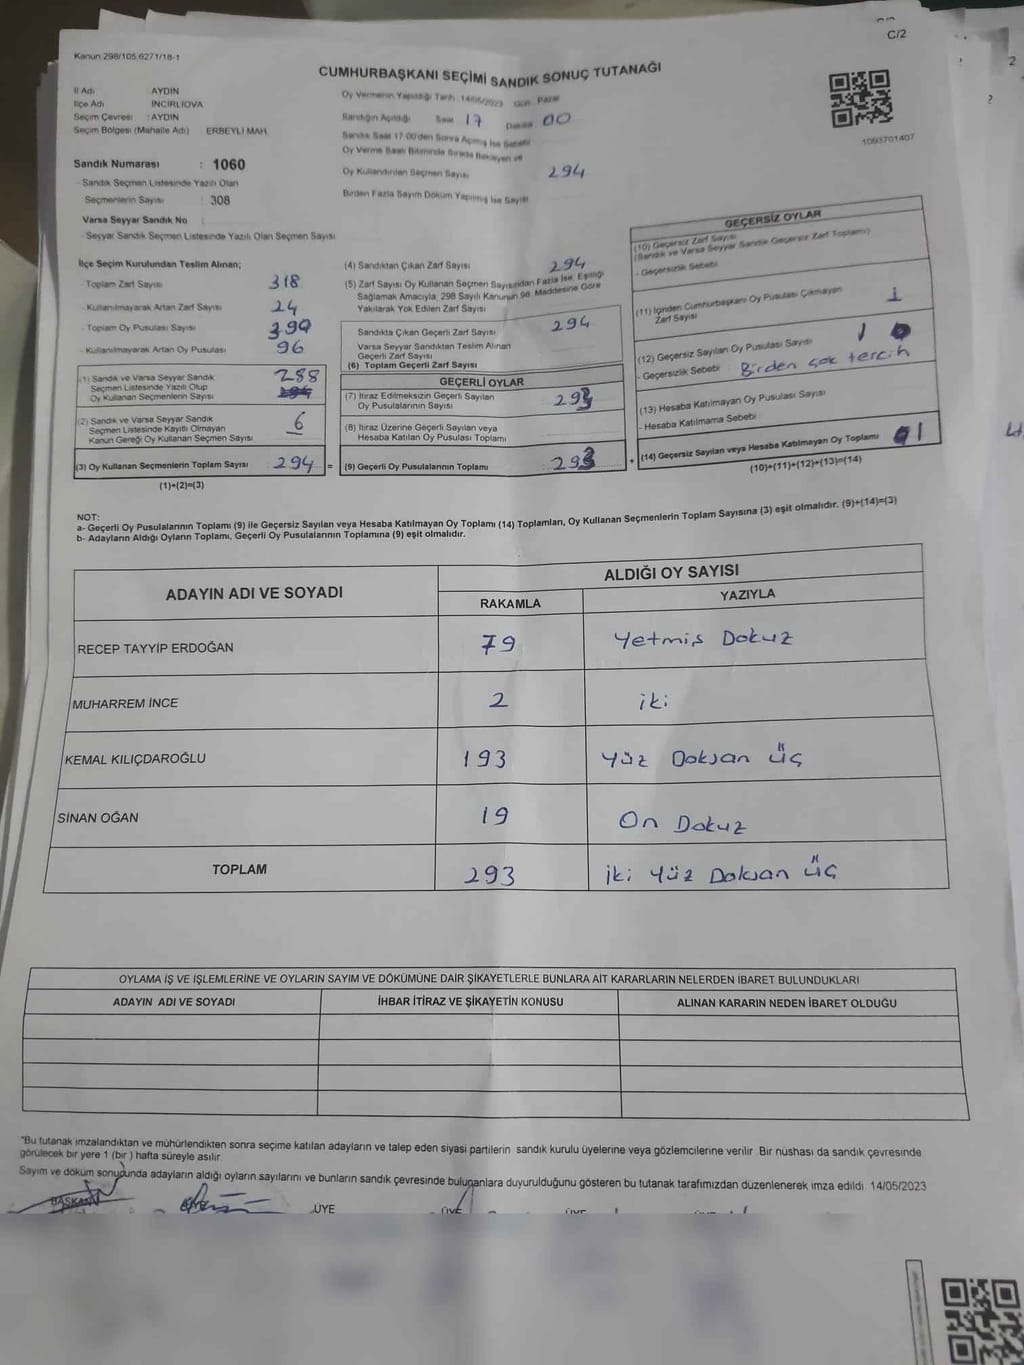 C/2
Kanun:298/105 6271/18-1
CUMHURBAŞKANI SEÇİMİ SANDIK SONUÇ TUTANAĞI
İl Adı AYDIN
İlçe Adı İNCİRLİOVA
Seçim Çevresi : AYDIN
Seçim Bölgesi (Mahalle Adı) ERBEYLİ MAH.
Sandık Numarası : 1060
Sandık Seçmen Listesinde Yazılı Olan
Seçmenlerin Sayısı : 308
Varsa Seyyar Sandık No :
Seyyar Sandık Seçmen Listesinde Yazılı Olan Seçmen Sayısı
Oy Vermenin Yapıldığı Tarih: 14/05/2023 Gün: Pazar
Sandığın Açıldığı Saat 17 Dakika 00
Sandık Saat 17:00'den Sonra Açılmış İse Sebebi
Oy Verme Saati Bitiminde Sırada Bekleyen ve
Oy Kullandırılan Seçmen Sayısı 294
Birden Fazla Sayım Döküm Yapılmış İse Sayısı
1093701407
İlçe Seçim Kurulundan Teslim Alınan;
Toplam Zarf Sayısı 318
- Kullanılmayarak Artan Zarf Sayısı 24
- Toplam Oy Pusulası Sayısı 390
- Kullanılmayarak Artan Oy Pusulası 96
(1) Sandık ve Varsa Seyyar Sandık 288
Seçmen Listesinde Yazılı Olup
Oy Kullanan Seçmenlerin Sayısı 294
(2) Sandık ve Varsa Seyyar Sandık 6
Seçmen Listesinde Kayıtlı Olmayan
Kanun Gereği Oy Kullanan Seçmen Sayısı
(3) Oy Kullanan Seçmenlerin Toplam Sayısı 294 =
(1)+(2)=(3)
(4) Sandıktan Çıkan Zarf Sayısı 294
(5) Zarf Sayısı Oy Kullanan Seçmen Sayısından Fazla İse, Eşitliği
Sağlamak Amacıyla, 298 Sayılı Kanunun 98. Maddesine Göre
Yakılarak Yok Edilen Zarf Sayısı
Sandıkta Çıkan Geçerli Zarf Sayısı 294
Varsa Seyyar Sandıktan Teslim Alınan
Geçerli Zarf Sayısı
(6) Toplam Geçerli Zarf Sayısı
GEÇERLİ OYLAR
(7) İtiraz Edilmeksizin Geçerli Sayılan 293
Oy Pusulalarının Sayısı
(8) İtiraz Üzerine Geçerli Sayılan veya
Hesaba Katılan Oy Pusulası Toplamı
(9) Geçerli Oy Pusulalarının Toplamı 293 +
GEÇERSİZ OYLAR
(10) Geçersiz Zarf Sayısı
(Sandık ve Varsa Seyyar Sandık Geçersiz Zarf Toplamı)
- Geçersizlik Sebebi
(11) İçinden Cumhurbaşkanı Oy Pusulası Çıkmayan 1
Zarf Sayısı
(12) Geçersiz Sayılan Oy Pusulası Sayısı 1
- Geçersizlik Sebebi Birden çok tercih
(13) Hesaba Katılmayan Oy Pusulası Sayısı
- Hesaba Katılmama Sebebi
(14) Geçersiz Sayılan veya Hesaba Katılmayan Oy Toplamı 1
(10)+(11)+(12)+(13)=(14)
NOT:
a- Geçerli Oy Pusulalarının Toplamı (9) ile Geçersiz Sayılan veya Hesaba Katılmayan Oy Toplamı (14) Toplamları, Oy Kullanan Seçmenlerin Toplam Sayısına (3) eşit olmalıdır. (9)+(14)=(3)
b- Adayların Aldığı Oyların Toplamı, Geçerli Oy Pusulalarının Toplamına (9) eşit olmalıdır.
ADAYIN ADI VE SOYADI ALDIĞI OY SAYISI
RAKAMLA YAZIYLA
RECEP TAYYİP ERDOĞAN 79 Yetmiş Dokuz
MUHARREM İNCE 2 iki
KEMAL KILIÇDAROĞLU 193 Yüz Doksan üç
SİNAN OĞAN 19 On Dokuz
TOPLAM 293 iki Yüz Doksan üç
OYLAMA İŞ VE İŞLEMLERİNE VE OYLARIN SAYIM VE DÖKÜMÜNE DAİR ŞİKAYETLERLE BUNLARA AİT KARARLARIN NELERDEN İBARET BULUNDUKLARI
ADAYIN ADI VE SOYADI İHBAR İTİRAZ VE ŞİKAYETİN KONUSU ALINAN KARARIN NEDEN İBARET OLDUĞU
"Bu tutanak imzalandıktan ve mühürlendikten sonra seçime katılan adayların ve talep eden siyasi partilerin sandık kurulu üyelerine veya gözlemcilerine verilir. Bir nüshası da sandık çevresinde
görülecek bir yere 1 (bir) hafta süreyle asılır.
Sayım ve döküm sonucunda adayların aldığı oyların sayılarını ve bunların sandık çevresinde bulunanlara duyurulduğunu gösteren bu tutanak tarafımızdan düzenlenerek imza edildi. 14/05/2023
BAŞKAN ÜYE ÜYE ÜYE